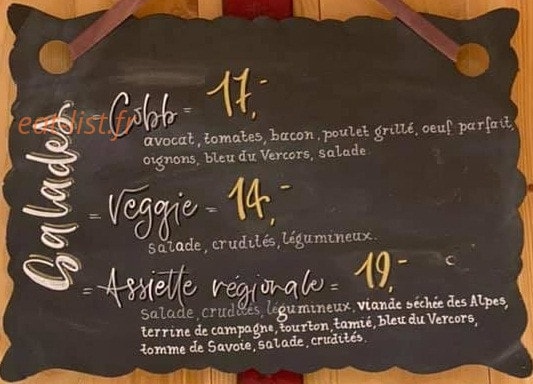 Salades
= Cobb = 17,-
avocat, tomates, bacon, poulet grillé, oeuf parfait,
oignons, bleu du Vercors, salade.
= Veggie = 14,-
salade, crudités, légumineux.
= Assiette régionale = 19,-
salade, crudités, légumineux, viande séchée des Alpes,
terrine de campagne, tourton, tamié, bleu du Vercors,
tomme de Savoie, salade, crudités.